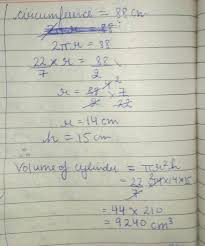 circumference = 88 cm
2πr = 88
2πr = 88
22/7 × r = 88/2
r = 88/2 × 7/22
r = 14 cm
h = 15 cm
Volume of cylinder = πr²h
= 22/7 14×14×15
= 44 × 210
= 9240 cm³